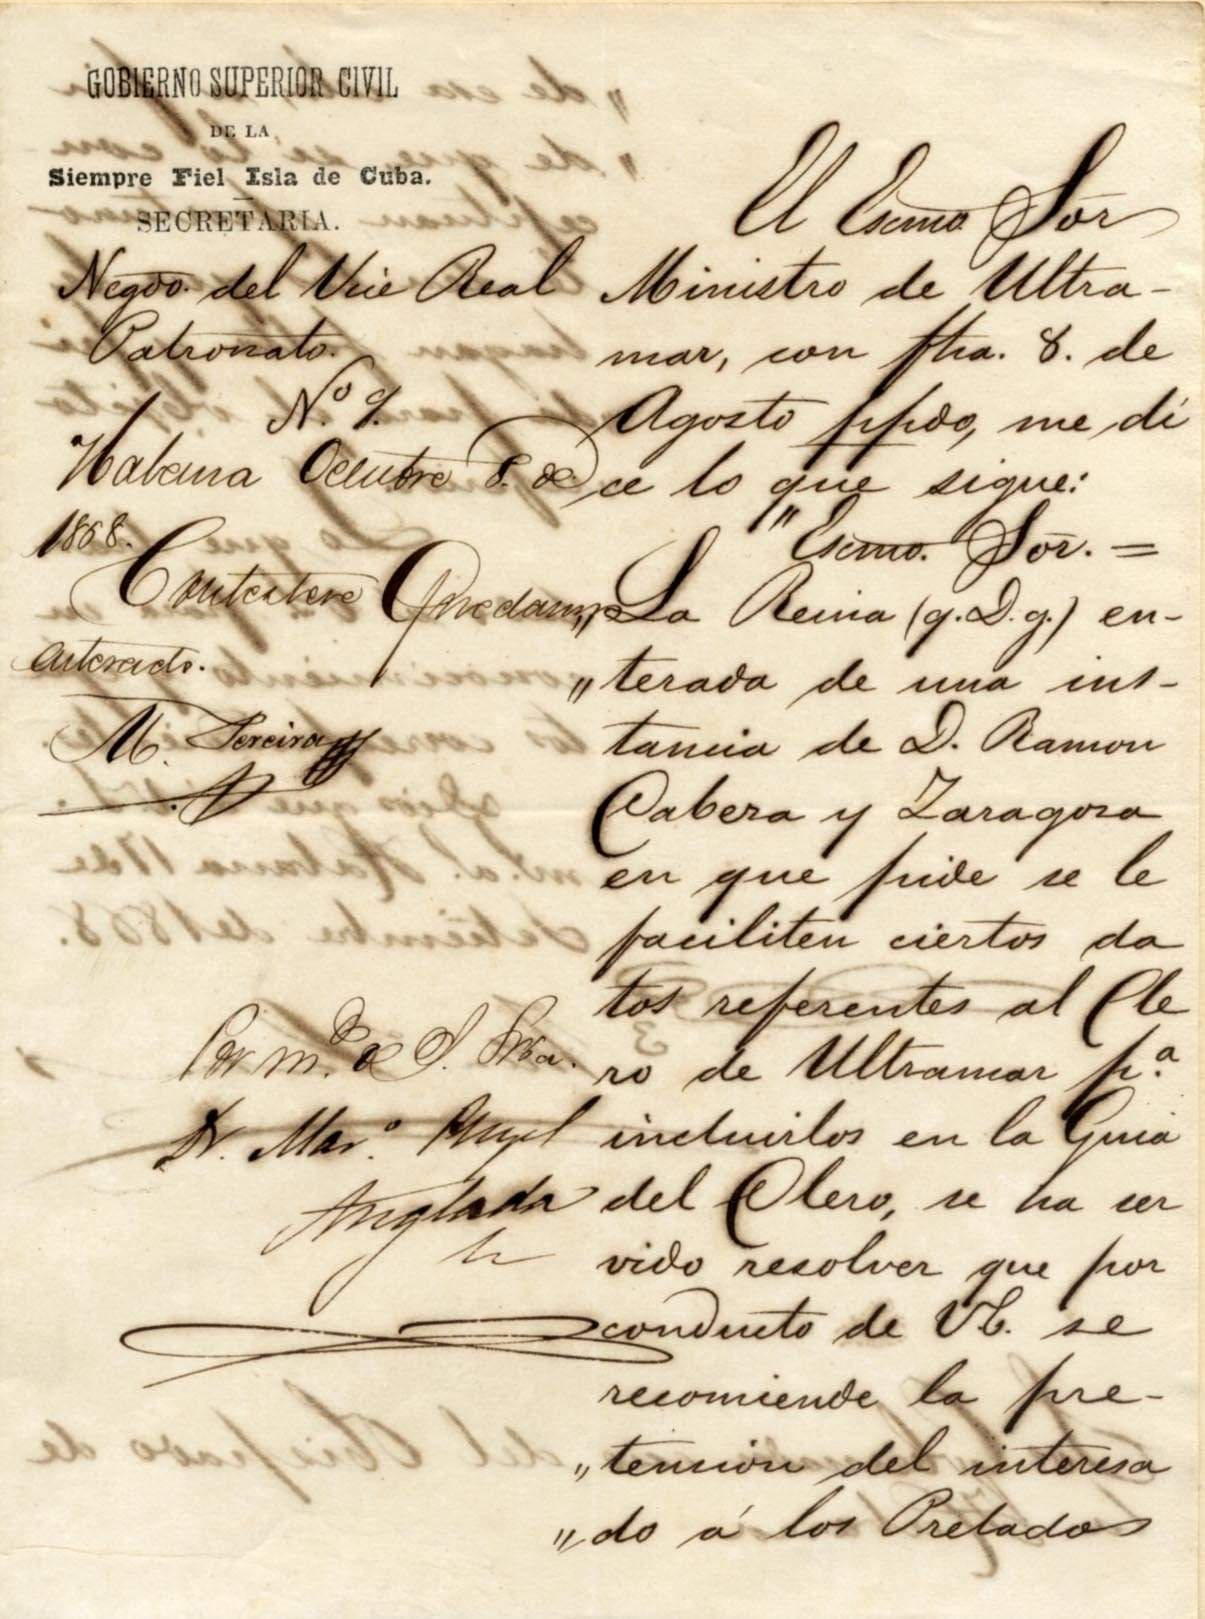 GOBIERNO SUPERIOR CIVIL
DE LA
Siempre Fiel Isla de Cuba.
SECRETARIA.
Negdo. del Vice Real
Patronato.
N.º 9.
Habana Octubre 8. de
1868.
Contestese Quedar
enterado.
M. Pereira
Por m.do de S. Sria.
Dr. Mar.º Angel
Anglada
El Escmo. Sor
Ministro de Ultra-
mar, con fha. 8. de
Agosto ppdo, me di
ce lo que sigue:
"Escmo. Sor. =
La Reina (q. D. g.) en-
„ terada de una ins-
tancia de D. Ramon
Cabera y Zaragosa
en que pide se le
faciliten ciertos da
tos referentes al Cle
ro de Ultramar p.ª
incluirlos en la Guia
del Clero, se ha ser
vido resolver que por
conducto de V.E. se
recomiende la pre-
„ tension del interesa
„ do á los Prelados